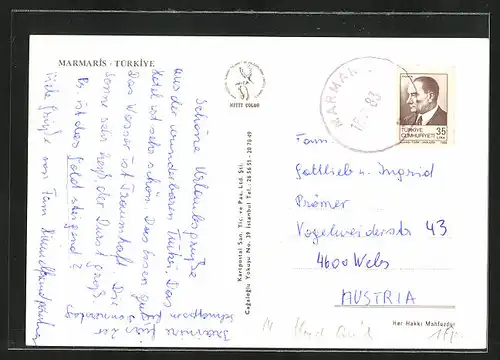 MARMARIS - TÜRKİYE
KEYIT COLOR
MARMARİS
83
35
LIRA
TÜRKİYE
CUMHURİYETİ
Schöne Urlaubsgrüße
aus der wunderbaren Türkei. Das
Hotel ist sehr schön. Das Essen gut
Das Wasser ist Traumhaft. Die
Sonne sehr heiß der Durst groß.
Ps. ist das Gold steigend?
Viele Grüße von Fam
Kartpostal San. Tic. ve Paz. Ltd. Şti.
Cağaloğlu Yokuşu No. 39 İstanbul Tel.: 26 56 51 - 20 70 49
Fam.
Gottlieb u. Ingrid
Prömer
Vogelweiderstr 43
4600 Wels
AUSTRIA
Her Hakkı Mahfuzdur